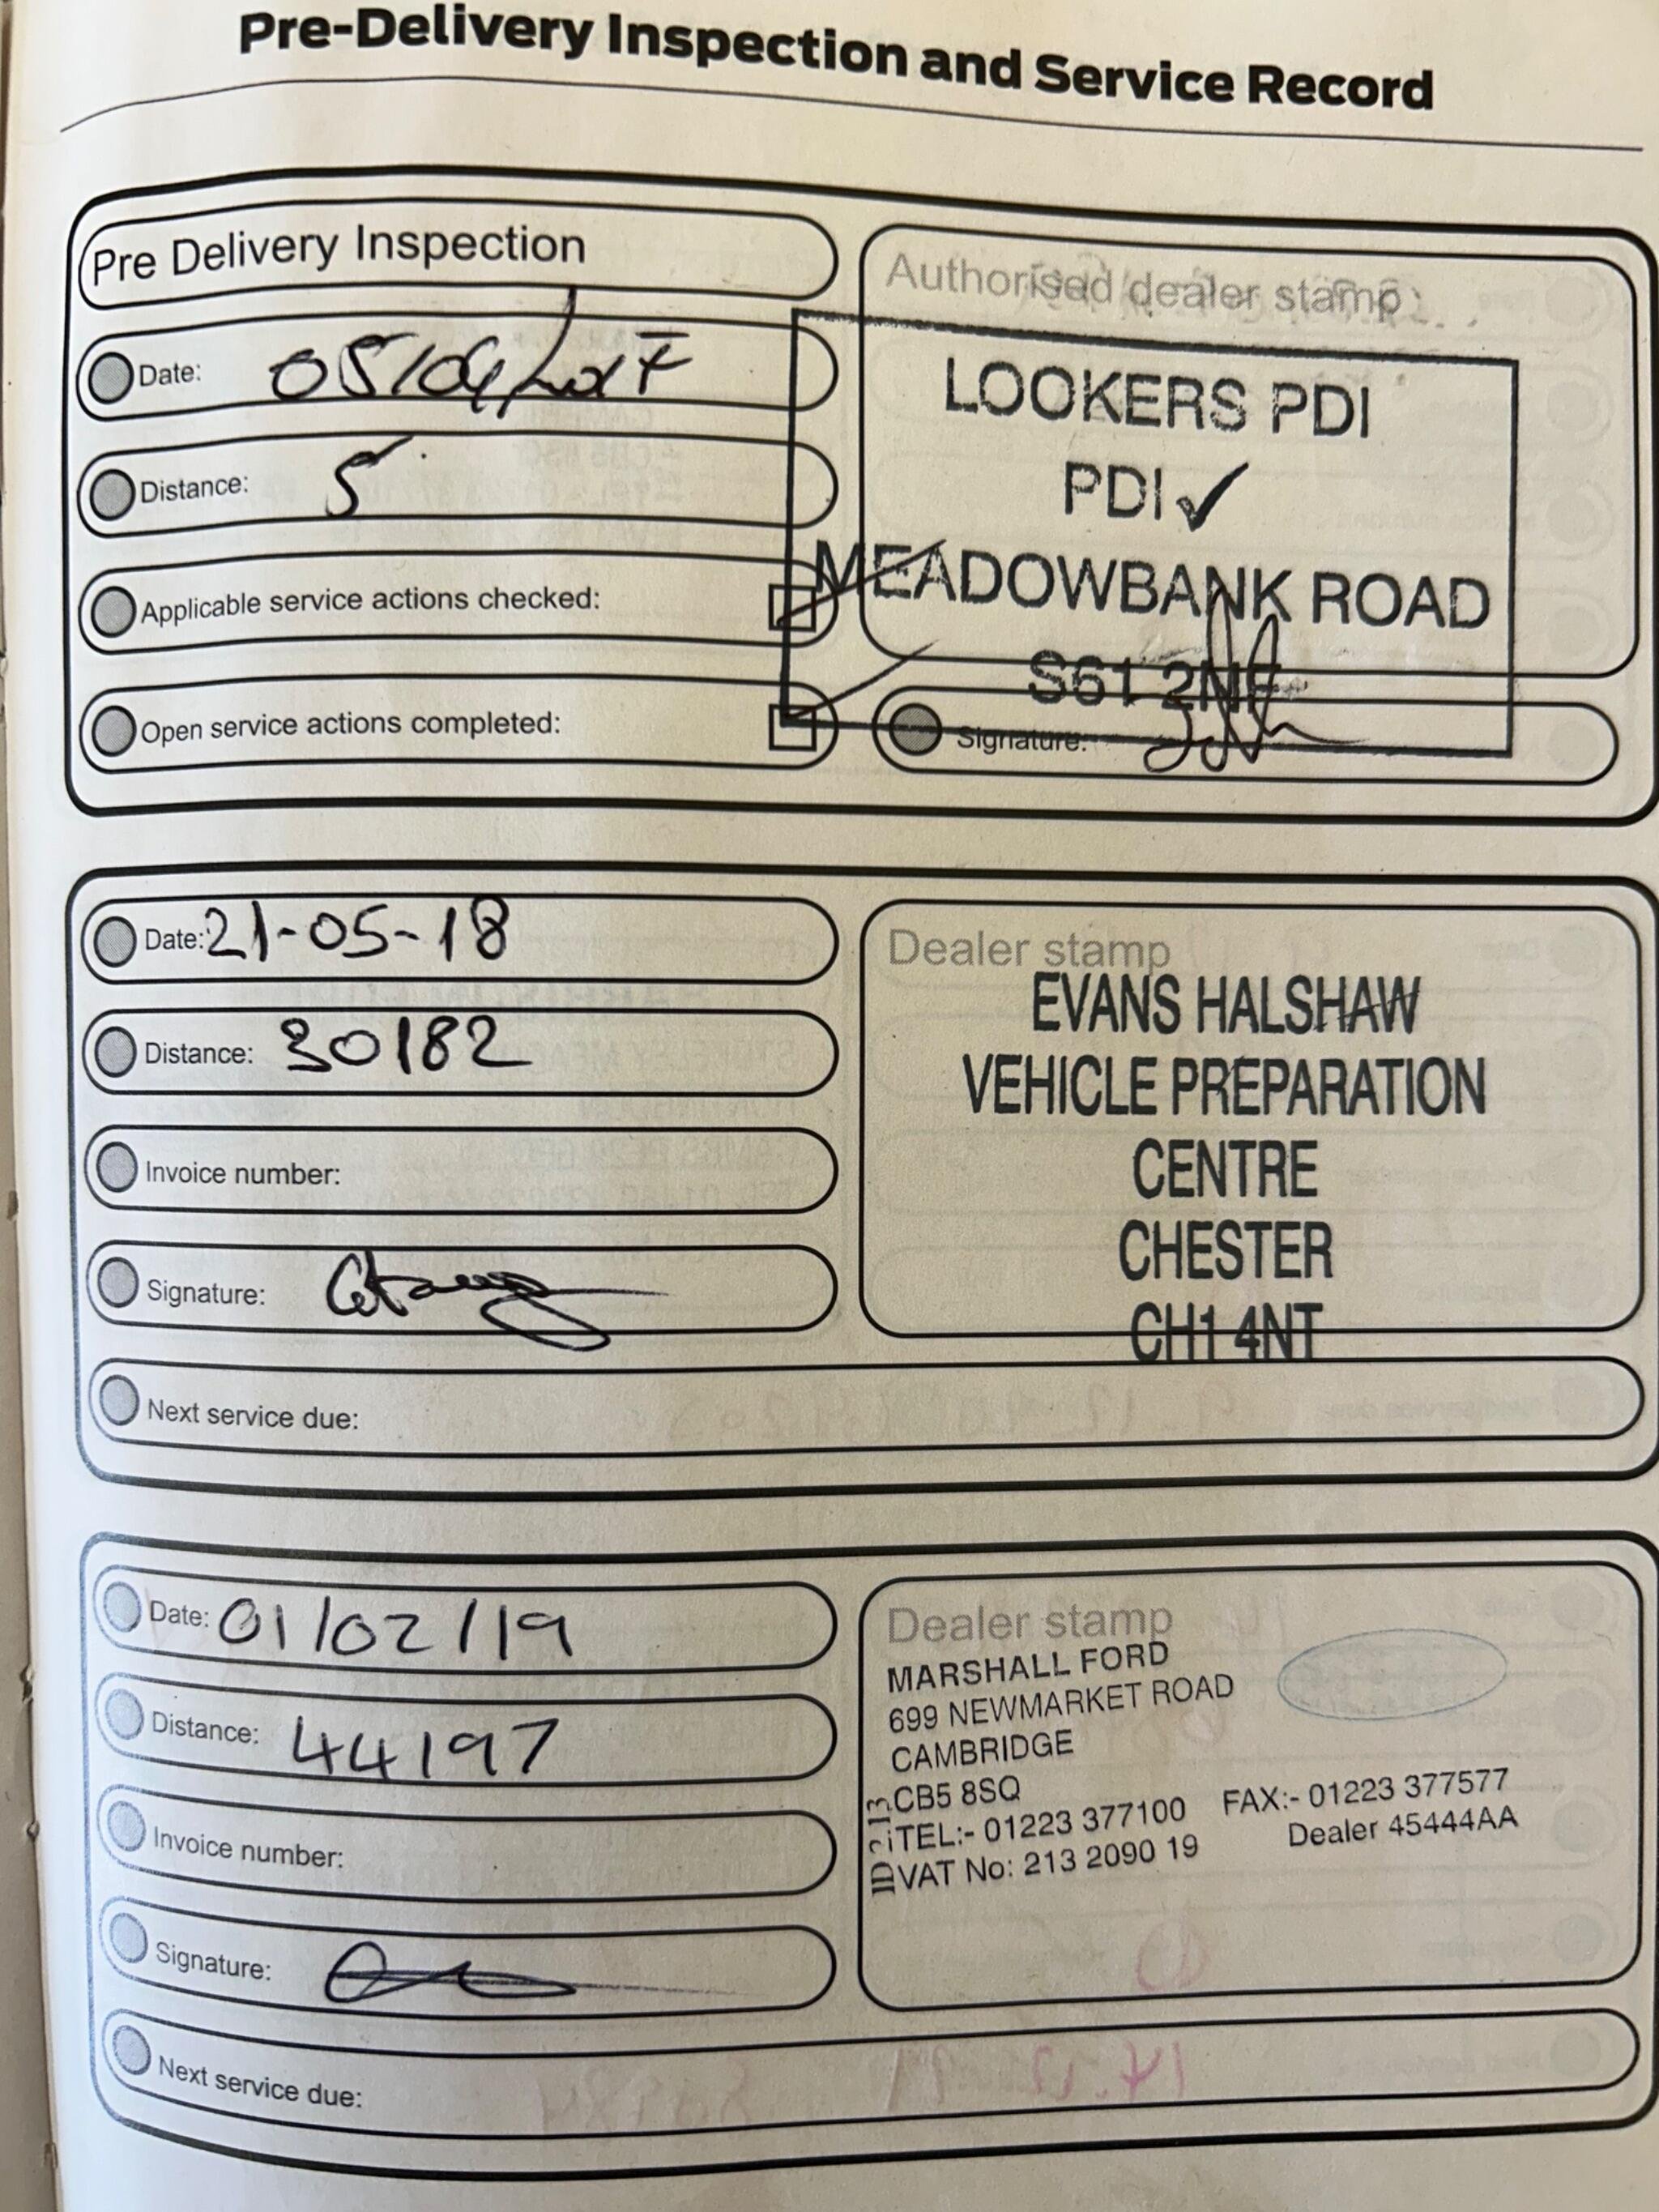 Pre-Delivery Inspection and Service Record
Pre Delivery Inspection
Date:
Distance: 5
Applicable service actions checked:
Open service actions completed:
Authorised dealer stamp
LOOKERS PDI
PDI ✓
MEADOWBANK ROAD
S61 2NF
Signature:
Date: 21-05-18
Distance: 30182
Invoice number:
Signature:
Next service due:
Dealer stamp
EVANS HALSHAW
VEHICLE PREPARATION
CENTRE
CHESTER
CH1 4NT
Date: 01/02/19
Distance: 44197
Invoice number:
Signature:
Next service due:
Dealer stamp
MARSHALL FORD
699 NEWMARKET ROAD
CAMBRIDGE
CB5 8SQ
TEL:- 01223 377100 FAX:- 01223 377577
VAT No: 213 2090 19 Dealer 45444AA